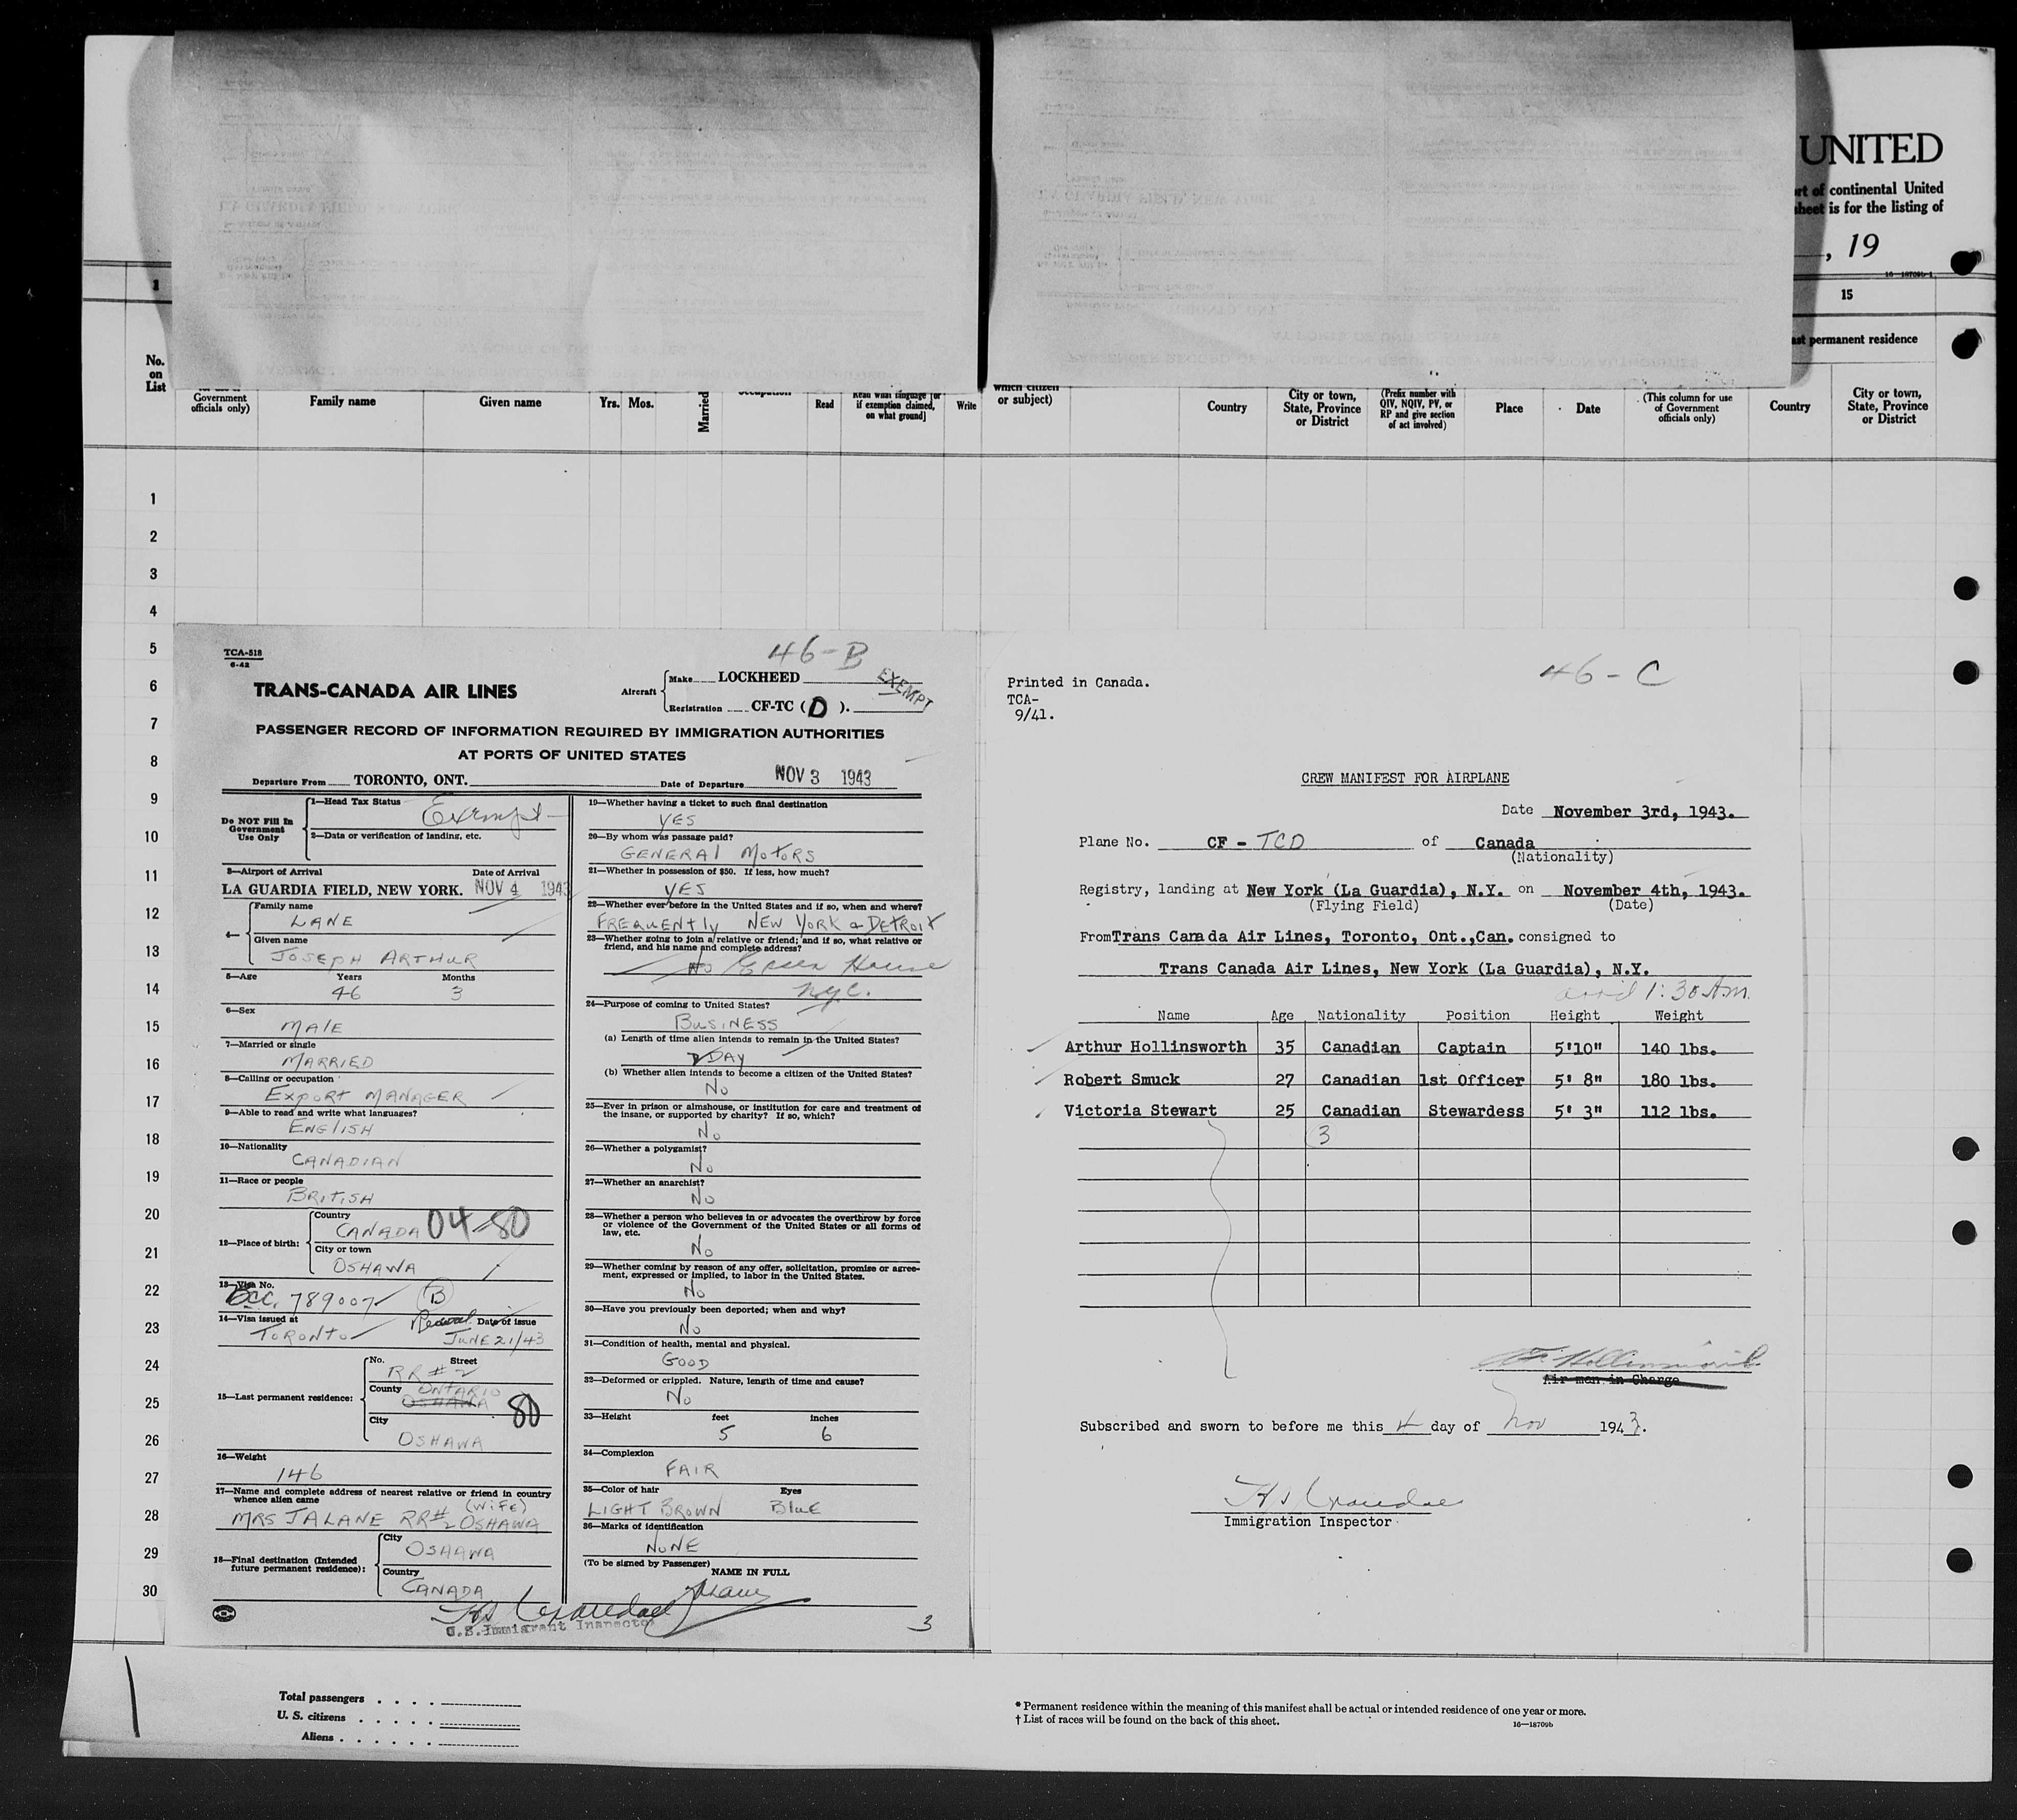 UNITED
rt of continental United
sheet is for the listing of
, 19
16—18709b-1
1
15
ast permanent residence
No. on List
Government officials only)
Family name
Given name
Yrs.
Mos.
Married
Read
Read what language [or if exemption claimed, on what ground]
Write
which citizen or subject)
Country
City or town, State, Province or District
(Prefix number with QIV, NQIV, PV, or RP and give section of act involved)
Place
Date
(This column for use of Government officials only)
Country
City or town, State, Province or District
1
2
3
4
5
6
7
8
9
10
11
12
13
14
15
16
17
18
19
20
21
22
23
24
25
26
27
28
29
30
TCA-518
6-42
46-B
TRANS-CANADA AIR LINES
Aircraft
Make LOCKHEED
Registration CF-TC (D).
EXEMPT
PASSENGER RECORD OF INFORMATION REQUIRED BY IMMIGRATION AUTHORITIES
AT PORTS OF UNITED STATES
Departure From TORONTO, ONT. Date of Departure NOV 3 1943
Do NOT Fill In Government Use Only
1—Head Tax Status Exempt
2—Data or verification of landing, etc.
3—Airport of Arrival Date of Arrival
LA GUARDIA FIELD, NEW YORK. NOV 4 1943
4—
Family name
LANE
Given name
JOSEPH ARTHUR
5—Age Years Months
46 3
6—Sex
MALE
7—Married or single
MARRIED
8—Calling or occupation
EXPORT MANAGER
9—Able to read and write what languages?
ENGLISH
10—Nationality
CANADIAN
11—Race or people
BRITISH
12—Place of birth:
Country
CANADA 04-80
City or town
OSHAWA
13—Visa No.
BCC. 789007 B
14—Visa issued at Date of issue
TORONTO JUNE 21/43
15—Last permanent residence:
No. Street
RR # 2
County ONTARIO
OSHAWA 80
City
OSHAWA
16—Weight
146
17—Name and complete address of nearest relative or friend in country
whence alien came (WIFE)
MRS J A LANE RR#2 OSHAWA
18—Final destination (Intended future permanent residence):
City
OSHAWA
Country
CANADA
U.S. Immigrant Inspector
19—Whether having a ticket to such final destination
YES
20—By whom was passage paid?
GENERAL MOTORS
21—Whether in possession of $50. If less, how much?
YES
22—Whether ever before in the United States and if so, when and where?
FREQUENTLY NEW YORK & DETROIT
23—Whether going to join a relative or friend; and if so, what relative or
friend, and his name and complete address?
No Essex House
NYC.
24—Purpose of coming to United States?
BUSINESS
(a) Length of time alien intends to remain in the United States?
DAY
(b) Whether alien intends to become a citizen of the United States?
No
25—Ever in prison or almshouse, or institution for care and treatment of
the insane, or supported by charity? If so, which?
No
26—Whether a polygamist?
No
27—Whether an anarchist?
No
28—Whether a person who believes in or advocates the overthrow by force
or violence of the Government of the United States or all forms of
law, etc.
No
29—Whether coming by reason of any offer, solicitation, promise or agree-
ment, expressed or implied, to labor in the United States.
No
30—Have you previously been deported; when and why?
No
31—Condition of health, mental and physical.
GOOD
32—Deformed or crippled. Nature, length of time and cause?
No
33—Height feet inches
5 6
34—Complexion
FAIR
35—Color of hair Eyes
LIGHT BROWN BLUE
36—Marks of identification
NONE
(To be signed by Passenger)
NAME IN FULL
3
46-C
Printed in Canada.
TCA-
9/41.
CREW MANIFEST FOR AIRPLANE
Date November 3rd, 1943.
Plane No. CF - TCD of Canada
(Nationality)
Registry, landing at New York (La Guardia), N.Y. on November 4th, 1943.
(Flying Field) (Date)
From Trans Canada Air Lines, Toronto, Ont.,Can. consigned to
Trans Canada Air Lines, New York (La Guardia), N.Y.
arrd 1:30 A.m.
Name Age Nationality Position Height Weight
Arthur Hollinsworth 35 Canadian Captain 5'10" 140 lbs.
Robert Smuck 27 Canadian 1st Officer 5' 8" 180 lbs.
Victoria Stewart 25 Canadian Stewardess 5' 3" 112 lbs.
3
Air man in Charge
Subscribed and sworn to before me this 4 day of Nov 1943.
Immigration Inspector
Total passengers
U. S. citizens
Aliens
* Permanent residence within the meaning of this manifest shall be actual or intended residence of one year or more.
† List of races will be found on the back of this sheet.
16—18709b